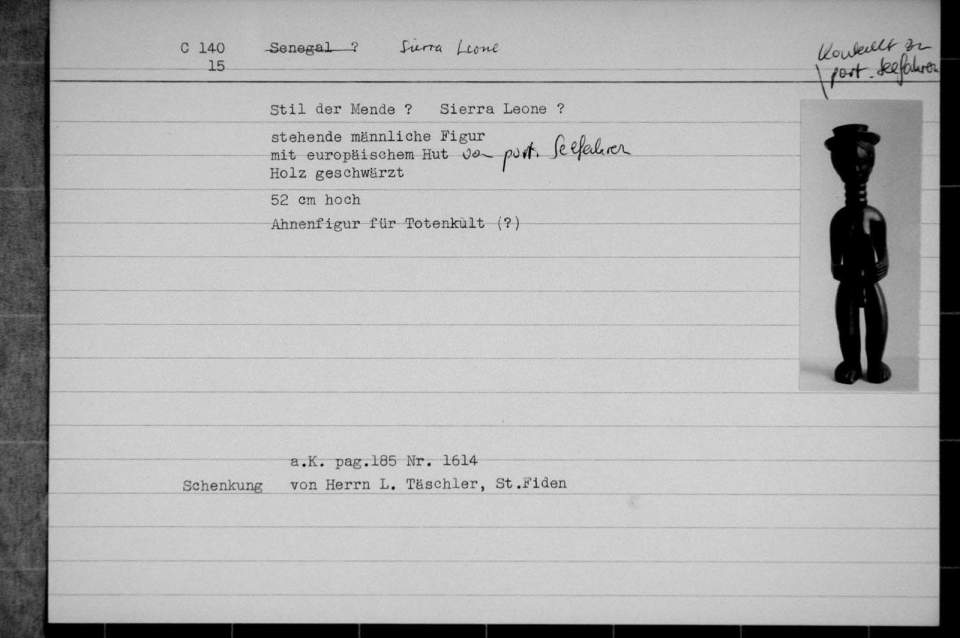 C 140 Senegal ? Sierra Leone
15
Kontakt zu
port. Seefahrer
Stil der Mende ? Sierra Leone ?
stehende männliche Figur
mit europäischem Hut von port. Seefahrer
Holz geschwärzt
52 cm hoch
Ahnenfigur für Totenkult (?)
a.K. pag.185 Nr. 1614
Schenkung von Herrn L. Täschler, St.Fiden